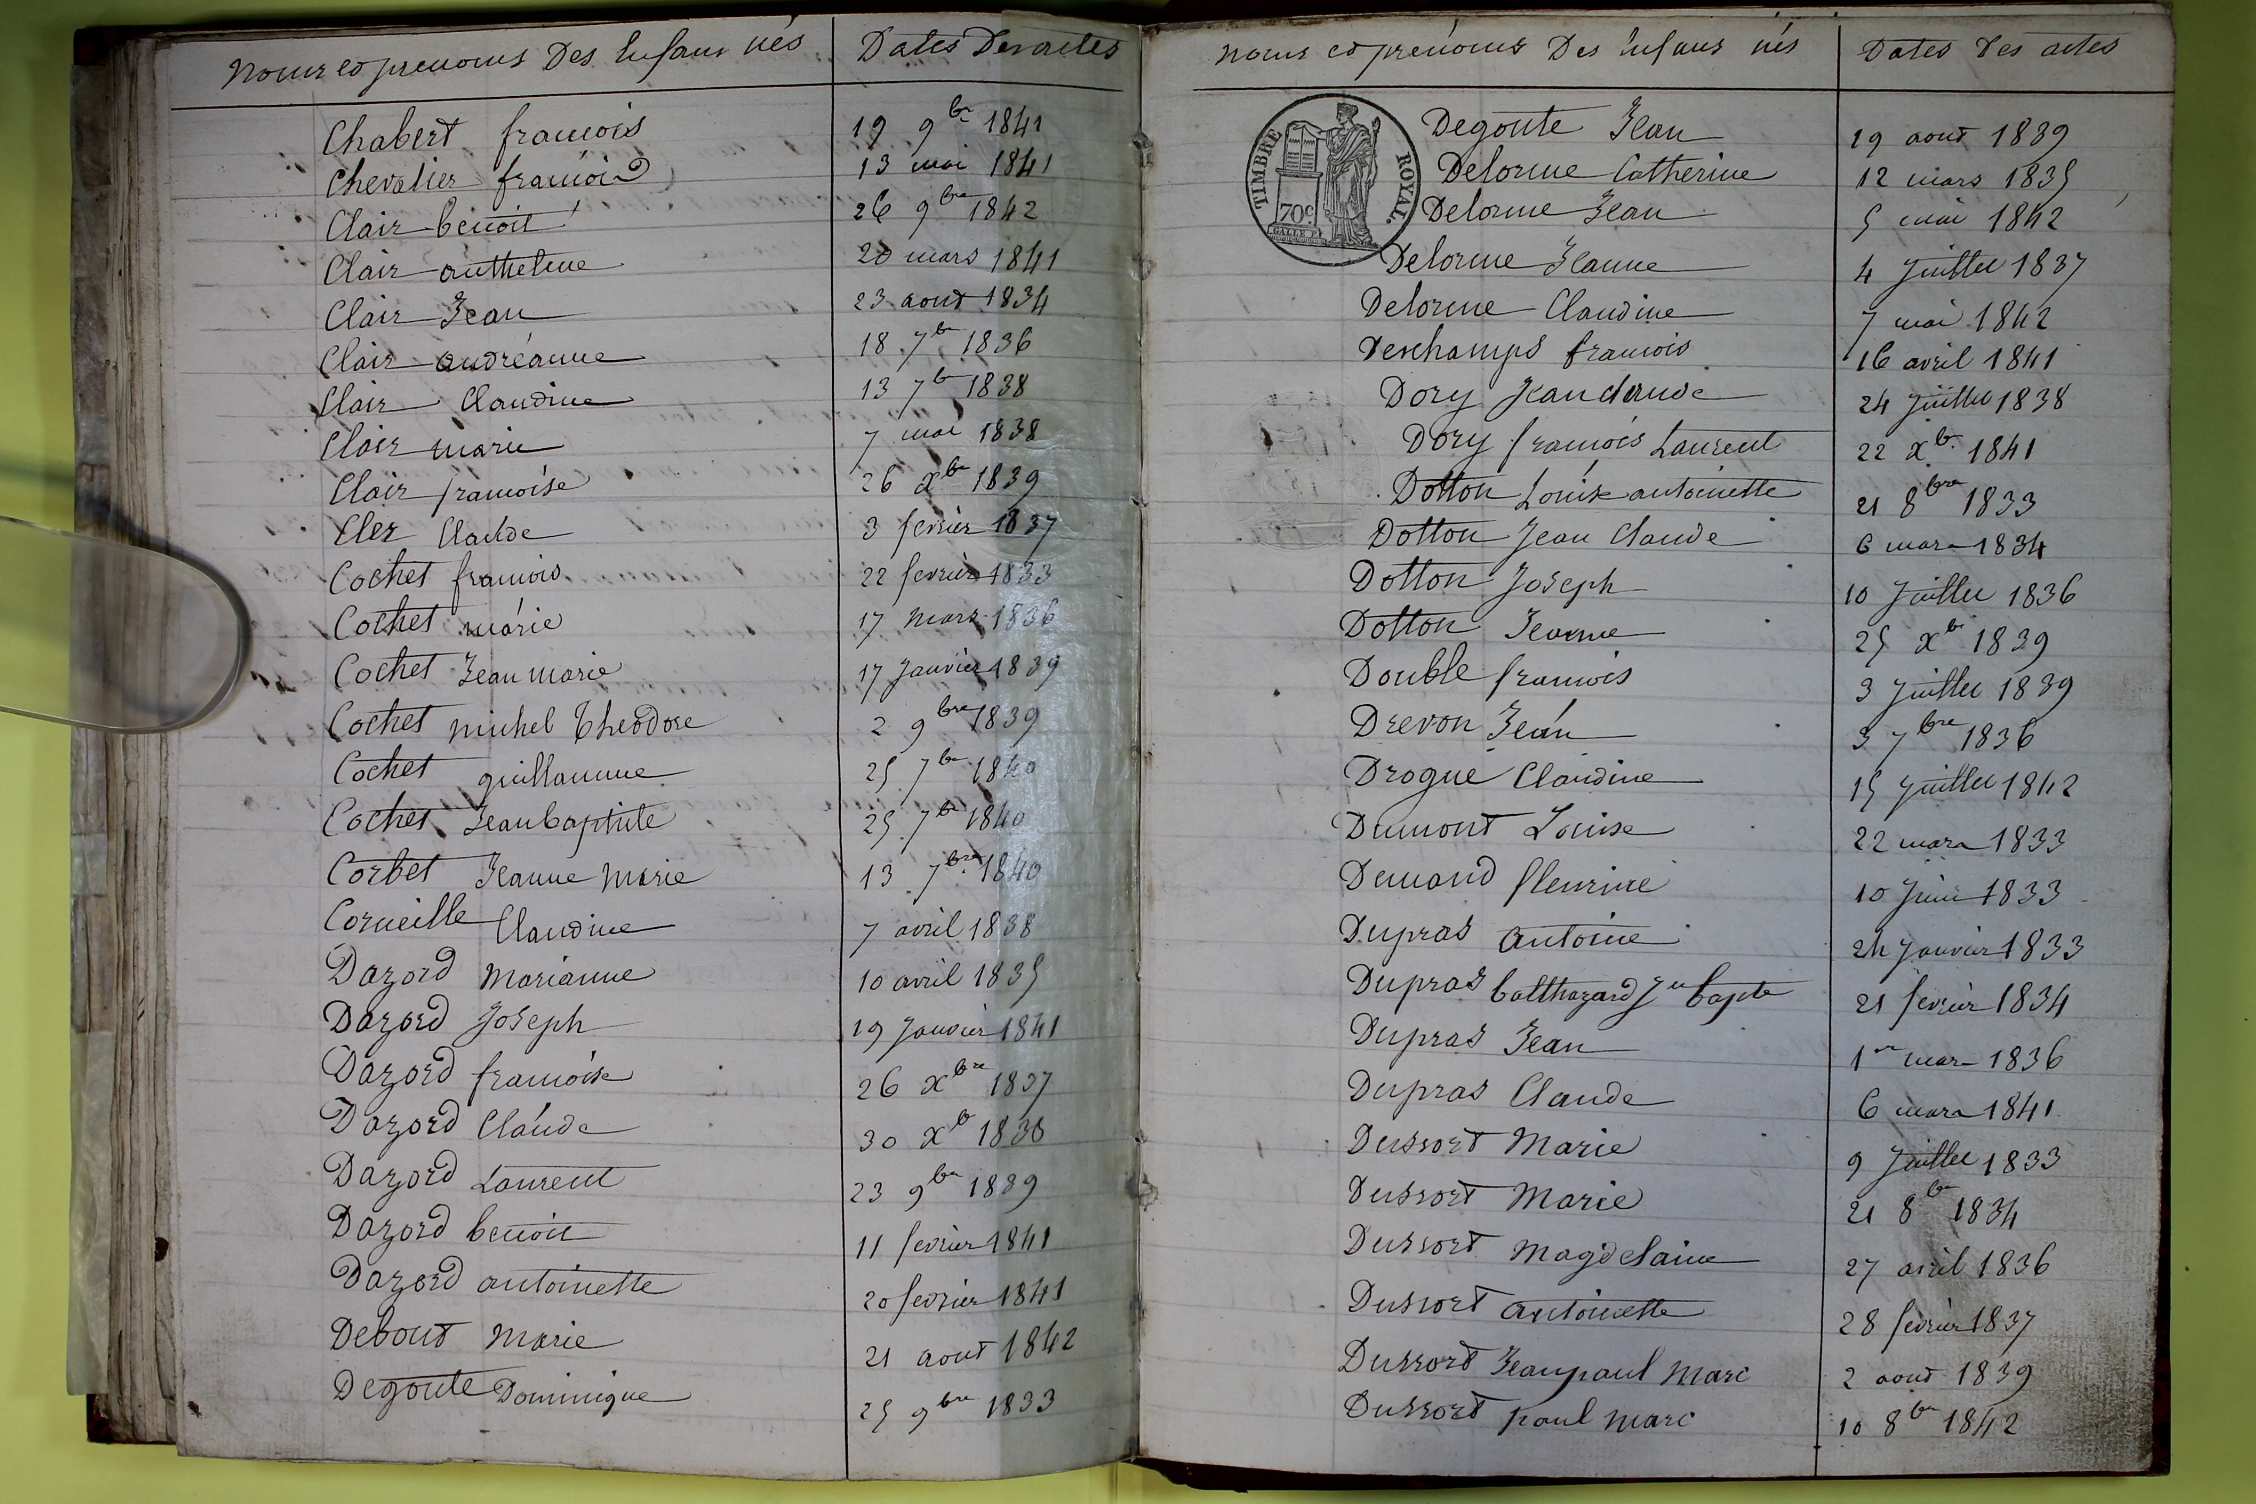 Noms et prenoms Des Enfans nés Dates Des actes
Chabert francois 19 9bre 1841
Chevalier francois 13 mai 1841
Clair benoit 26 9bre 1842
Clair anthelme 20 mars 1841
Clair Jean 23 aout 1834
Clair andréanne 18 7bre 1836
Clair Claudine 13 7bre 1838
Clair marie 7 mai 1838
Clair francoise 26 xbre 1839
Cler Claude 3 fevrier 1837
Cochet francois 22 fevrier 1833
Cochet marie 17 mars 1836
Cochet Jean marie 17 Janvier 1839
Cochet michel Theodore 2 9bre 1839
Cochet guillaume 25 7bre 1840
Cochet Jean baptiste 25 7bre 1840
Corbet Jeanne Marie 13 7bre 1840
Corneille Claudine 7 avril 1838
Dazord Marianne 10 avril 1835
Dazord Joseph 19 Janvier 1841
Dazord francoise 26 xbre 1837
Dazord Claude 30 xbre 1838
Dazord Laurent 23 9bre 1839
Dazord benoit 11 fevrier 1841
Dazord antoinette 20 fevrier 1841
Debout Marie 21 aout 1842
Degoute Dominique 25 9bre 1833
Noms et prénoms Des Enfans nés Dates Des actes
TIMBRE ROYAL.
70c
GALLE F.
Degoute Jean 19 aout 1839
Delorme Catherine 12 mars 1835
Delorme Jean 5 mai 1842
Delorme Jeanne 4 Juillet 1837
Delorme Claudine 7 mai 1842
Deschamps francois 16 avril 1841
Dory Jean claude 24 Juillet 1838
Dory francois Laurent 22 xbre 1841
Dotton Louise antoinette 21 8bre 1833
Dotton Jean Claude 6 mars 1834
Dotton Joseph 10 Juillet 1836
Dotton Jeanne 25 xbre 1839
Double francois 3 Juillet 1839
Drevon Jean 3 7bre 1836
Drogue Claudine 15 Juillet 1842
Dumont Louise 22 mars 1833
Dumond fleurine 10 Juin 1833
Dupras antoine 24 Janvier 1833
Dupras balthazard Jn bapte 21 fevrier 1834
Dupras Jean 1er mars 1836
Dupras Claude 6 mars 1841
Dussort Marie 9 Juillet 1833
Dussort Marie 21 8bre 1834
Dussort magdelaine 27 avril 1836
Dussort antoinette 28 fevrier 1837
Dussort Jean paul Marc 2 aout 1839
Dussort paul marc 10 8bre 1842